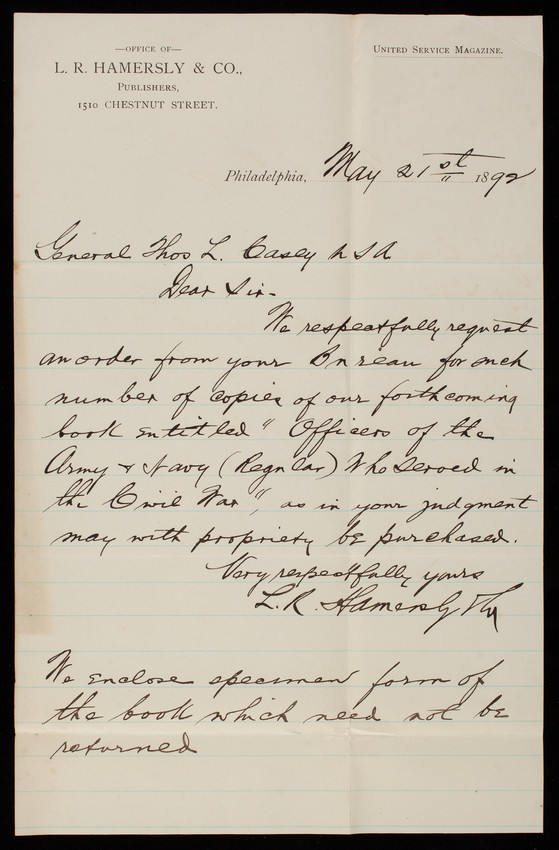 —OFFICE OF—
L. R. HAMERSLY & CO.,
PUBLISHERS,
1510 CHESTNUT STREET.
UNITED SERVICE MAGAZINE.
Philadelphia, May 21st 1892
General Thos L. Casey U S A
Dear Sir-
We respectfully request
an order from your Bureau for such
number of copies of our forthcoming
book entitled "Officers of the
Army & Navy (Regular) Who Served in
the Civil War", as in your judgment
may with propriety be purchased.
Very respectfully yours
L. R. Hamersly & Co
We enclose specimen form of
the book which need not be
returned